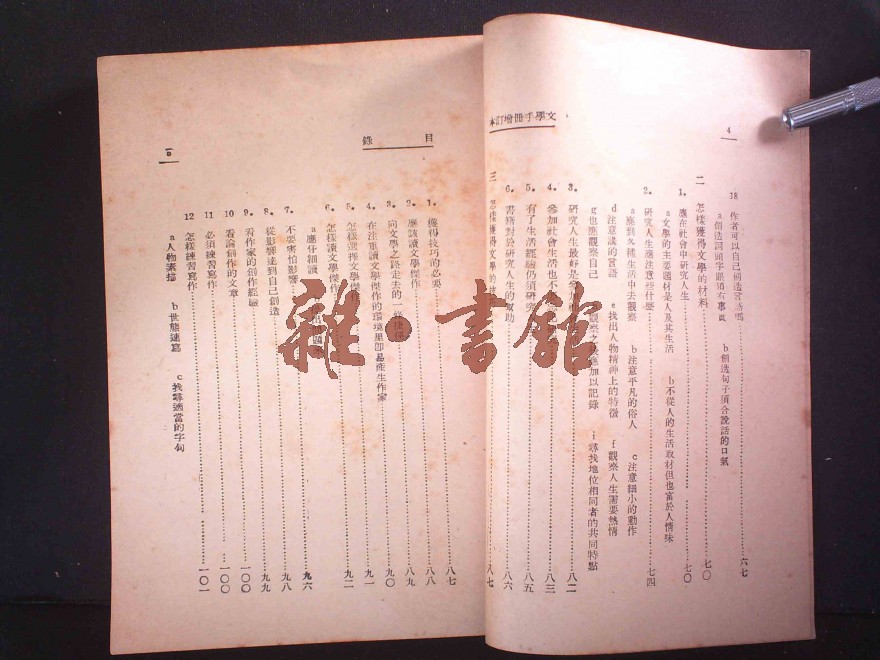 文學手冊增訂本
4
18 作者可以自己創造言語嗎……六七
a 創造詞頭字眼須有事實 b 創造句子須合說話的口氣
二 怎樣獲得文學的材料……七〇
1. 應在社會中研究人生……七〇
a 文學的主要題材是人及其生活 b 不從人的生活取材但也富於人情味
2. 研究人生應注意些什麼……七四
a 應到各種生活中去觀察 b 注意平凡的俗人 c 注意細小的動作
d 注意談的言語 e 找出人物精神上的特徵 f 觀察人生需要熱情
g 也應觀察自己 觀察之後應加以記錄 i 尋找地位相同者的共同特點
3. 研究人生最好是參加……八二
4. 參加社會生活也不……八三
5. 有了生活經驗仍須研究……八五
6. 書籍對於研究人生的幫助……八六
三 怎樣獲得文學的技……八七
目錄
5
1. 獲得技巧的必要……八七
2. 應該讀文學傑作……八八
3. 向文學之路走去的一條捷徑……八九
4. 在注重讀文學傑作的環境里即易產生作家……九〇
5. 怎樣選擇文學傑作……九一
6. 怎樣讀文學傑作……九二
a 應仔細讀……九六
7. 不要害怕影響……九八
8. 從影響達到自己創造……九九
9. 看作家的創作經驗……一〇〇
10 看論創作的文章……一〇〇
11 必須練習寫作……一〇一
12 怎樣練習寫作……一〇一
a 人物素描 b 世態速寫 c 找尋適當的字句
雜·書館